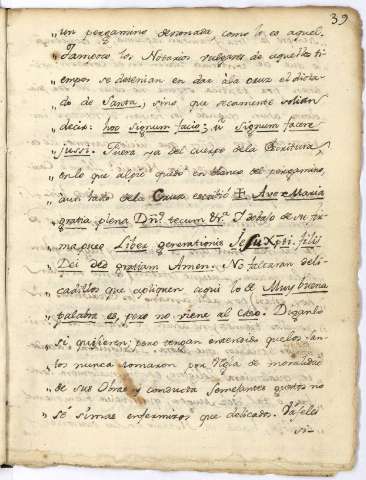 39
„ un pergamino desonada como lo es aquel.
„ Tampoco los Notarios vulgares de aquellos ti-
„ empos se detenian en dar à la Cruz el dicta-
„ do de Santa, sino que secamente solian
„ decir: hoc signum facio; ù signum facere
„ jussi. Fuera ya del cuerpo de la Escritura,
„ en lo que alli quedò en blanco del pergamino,
„ à un lado de la Cruz escribiò ✠ Ave Maria
„ gratia plena Dñs. tecum &ra. Y debajo de su fir-
„ ma puso Liber generationis Jesu Xpti. filii
„ Dei ded gratiam Amen. No faltaran deli-
„ cadillos que apliquen aqui lo de Muy buena
„ palabra es, pero no viene al caso. Diganlo
„ si quisieren, pero tengan entendido que los San-
„ tos nunca tomaron por regla de moralidad
„ de sus Obras y conducta semejantes quartos no
„ se sirvae enfermizos que delicados.
si-